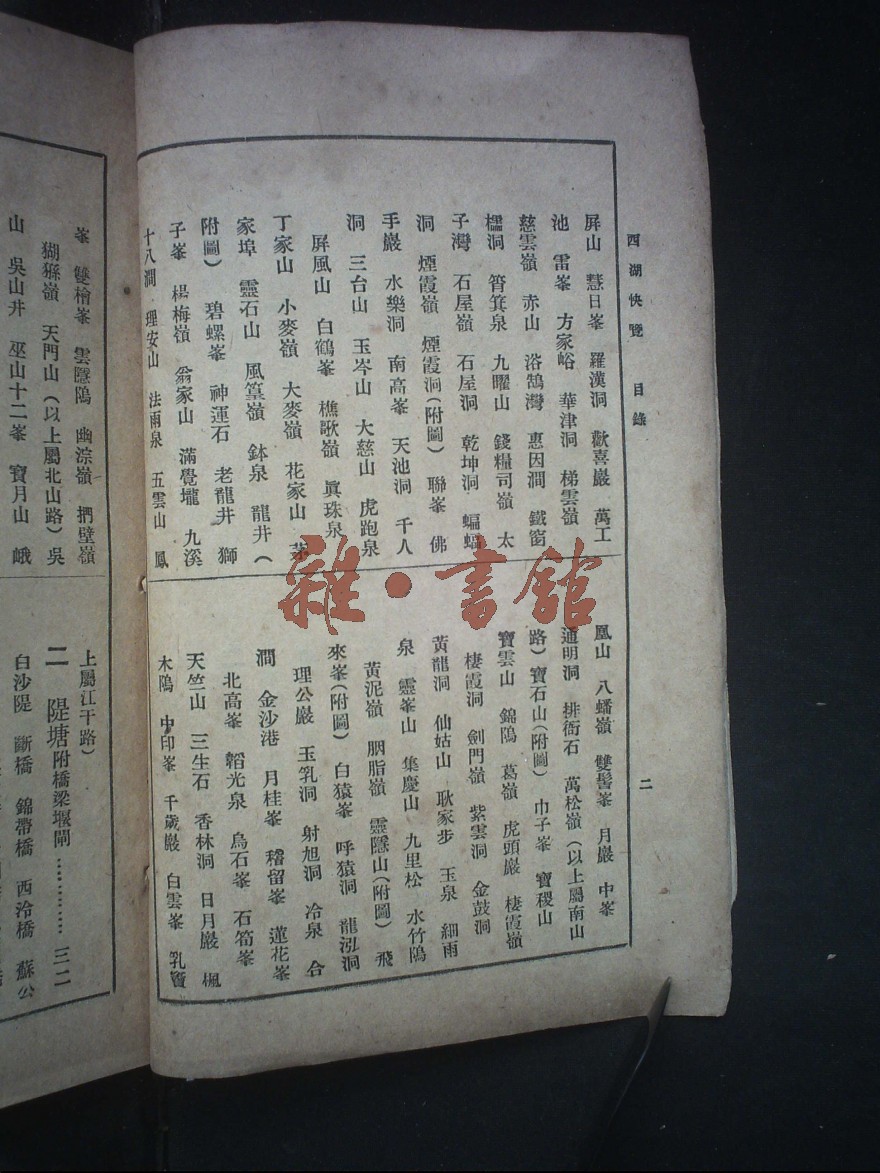 西湖快覽 目錄 二
屏山 慧日峯 羅漢洞 歡喜巖 萬工
池 雷峯 方家峪 華津洞 梯雲嶺
慈雲嶺 赤山 浴鵠灣 惠因澗 鐵窗
櫺洞 筲箕泉 九曜山 錢糧司嶺 太
子灣 石屋嶺 石屋洞 乾坤洞 蝙蝠
洞 煙霞嶺 煙霞洞(附圖) 聯峯 佛
手巖 水樂洞 南高峯 天池洞 千人
洞 三台山 玉岑山 大慈山 虎跑泉
屏風山 白鶴峯 樵歌嶺 眞珠泉
丁家山 小麥嶺 大麥嶺 花家山 茅
家埠 靈石山 風篁嶺 鉢泉 龍井(
附圖) 碧螺峯 神運石 老龍井 獅
子峯 楊梅嶺 翁家山 滿覺壠 九溪
十八澗 理安山 法雨泉 五雲山 鳳
凰山 八蟠嶺 雙髻峯 月巖 中峯
通明洞 排衙石 萬松嶺(以上屬南山
路) 寶石山(附圖) 巾子峯 寶稷山
寶雲山 錦塢 葛嶺 虎頭巖 棲霞嶺
棲霞洞 劍門嶺 紫雲洞 金鼓洞
黃龍洞 仙姑山 耿家步 玉泉 細雨
泉 靈峯山 集慶山 九里松 水竹塢
黃泥嶺 胭脂嶺 靈隱山(附圖) 飛
來峯(附圖) 白猿峯 呼猿洞 龍泓洞
理公巖 玉乳洞 射旭洞 冷泉 合
澗 金沙港 月桂峯 稽留峯 蓮花峯
北高峯 韜光泉 烏石峯 石筍峯
天竺山 三生石 香林洞 日月巖 楓
木塢 中印峯 千歲巖 白雲峯 乳竇
峯 雙檜峯 雲隱塢 幽淙嶺 捫壁嶺
猢猻嶺 天門山(以上屬北山路) 吳
山 吳山井 巫山十二峯 寶月山 峨
上屬江干路)
二 隄塘附橋梁堰閘…………三二
白沙隄 斷橋 錦帶橋 西泠橋 蘇公
雜·書館